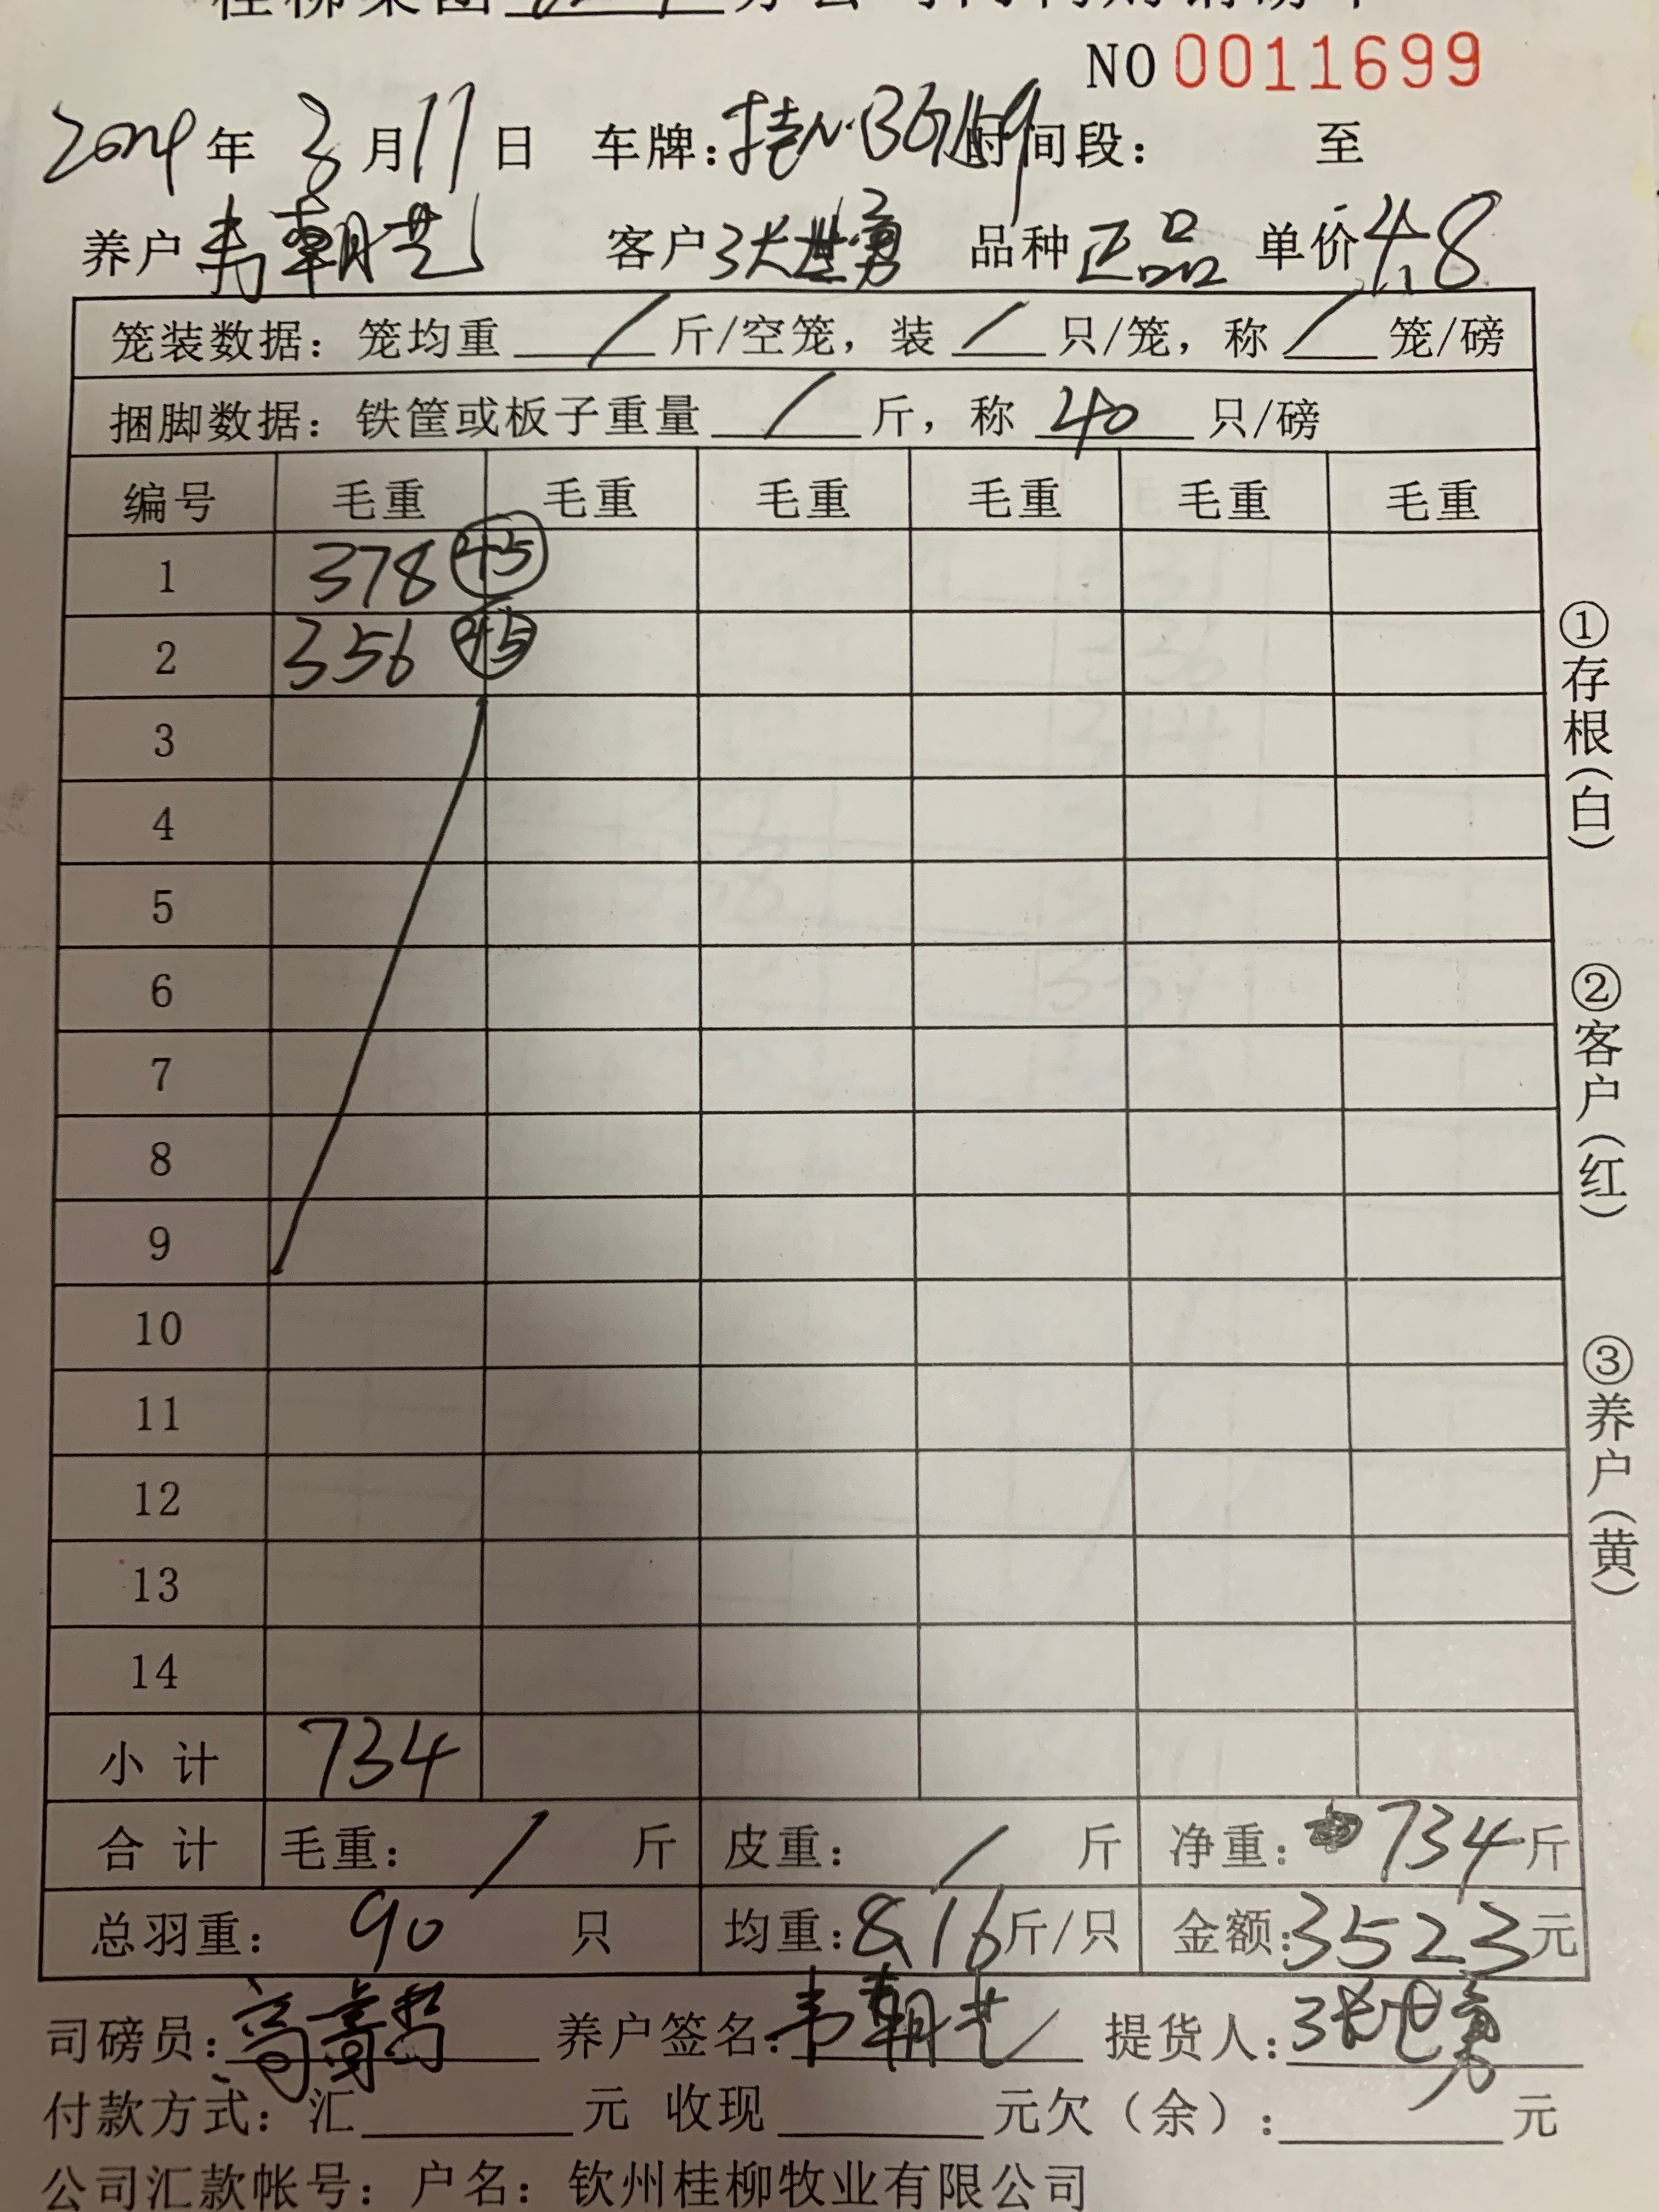 NO 0011699
2024年 3月11日 车牌: 桂N·36759 时间段: 至
养户 韦朝艺 客户 张世勇 品种 正品 单价 4.8
笼装数据: 笼均重 / 斤/空笼, 装 / 只/笼, 称 / 笼/磅
捆脚数据: 铁筐或板子重量 / 斤, 称 40 只/磅
编号 毛重 毛重 毛重 毛重 毛重 毛重
1 378 45
2 356 45
3
4
5
6
7
8
9
10
11
12
13
14
小计 734
合计 毛重: / 斤 皮重: / 斤 净重: 734斤
总羽重: 90 只 均重: 8.16斤/只 金额: 3523元
司磅员: 高 养户签名: 韦朝艺 提货人: 张世勇
付款方式: 汇 元 收现 元欠(余): 元
公司汇款帐号: 户名: 钦州桂柳牧业有限公司
①存根(白)
②客户(红)
③养户(黄)